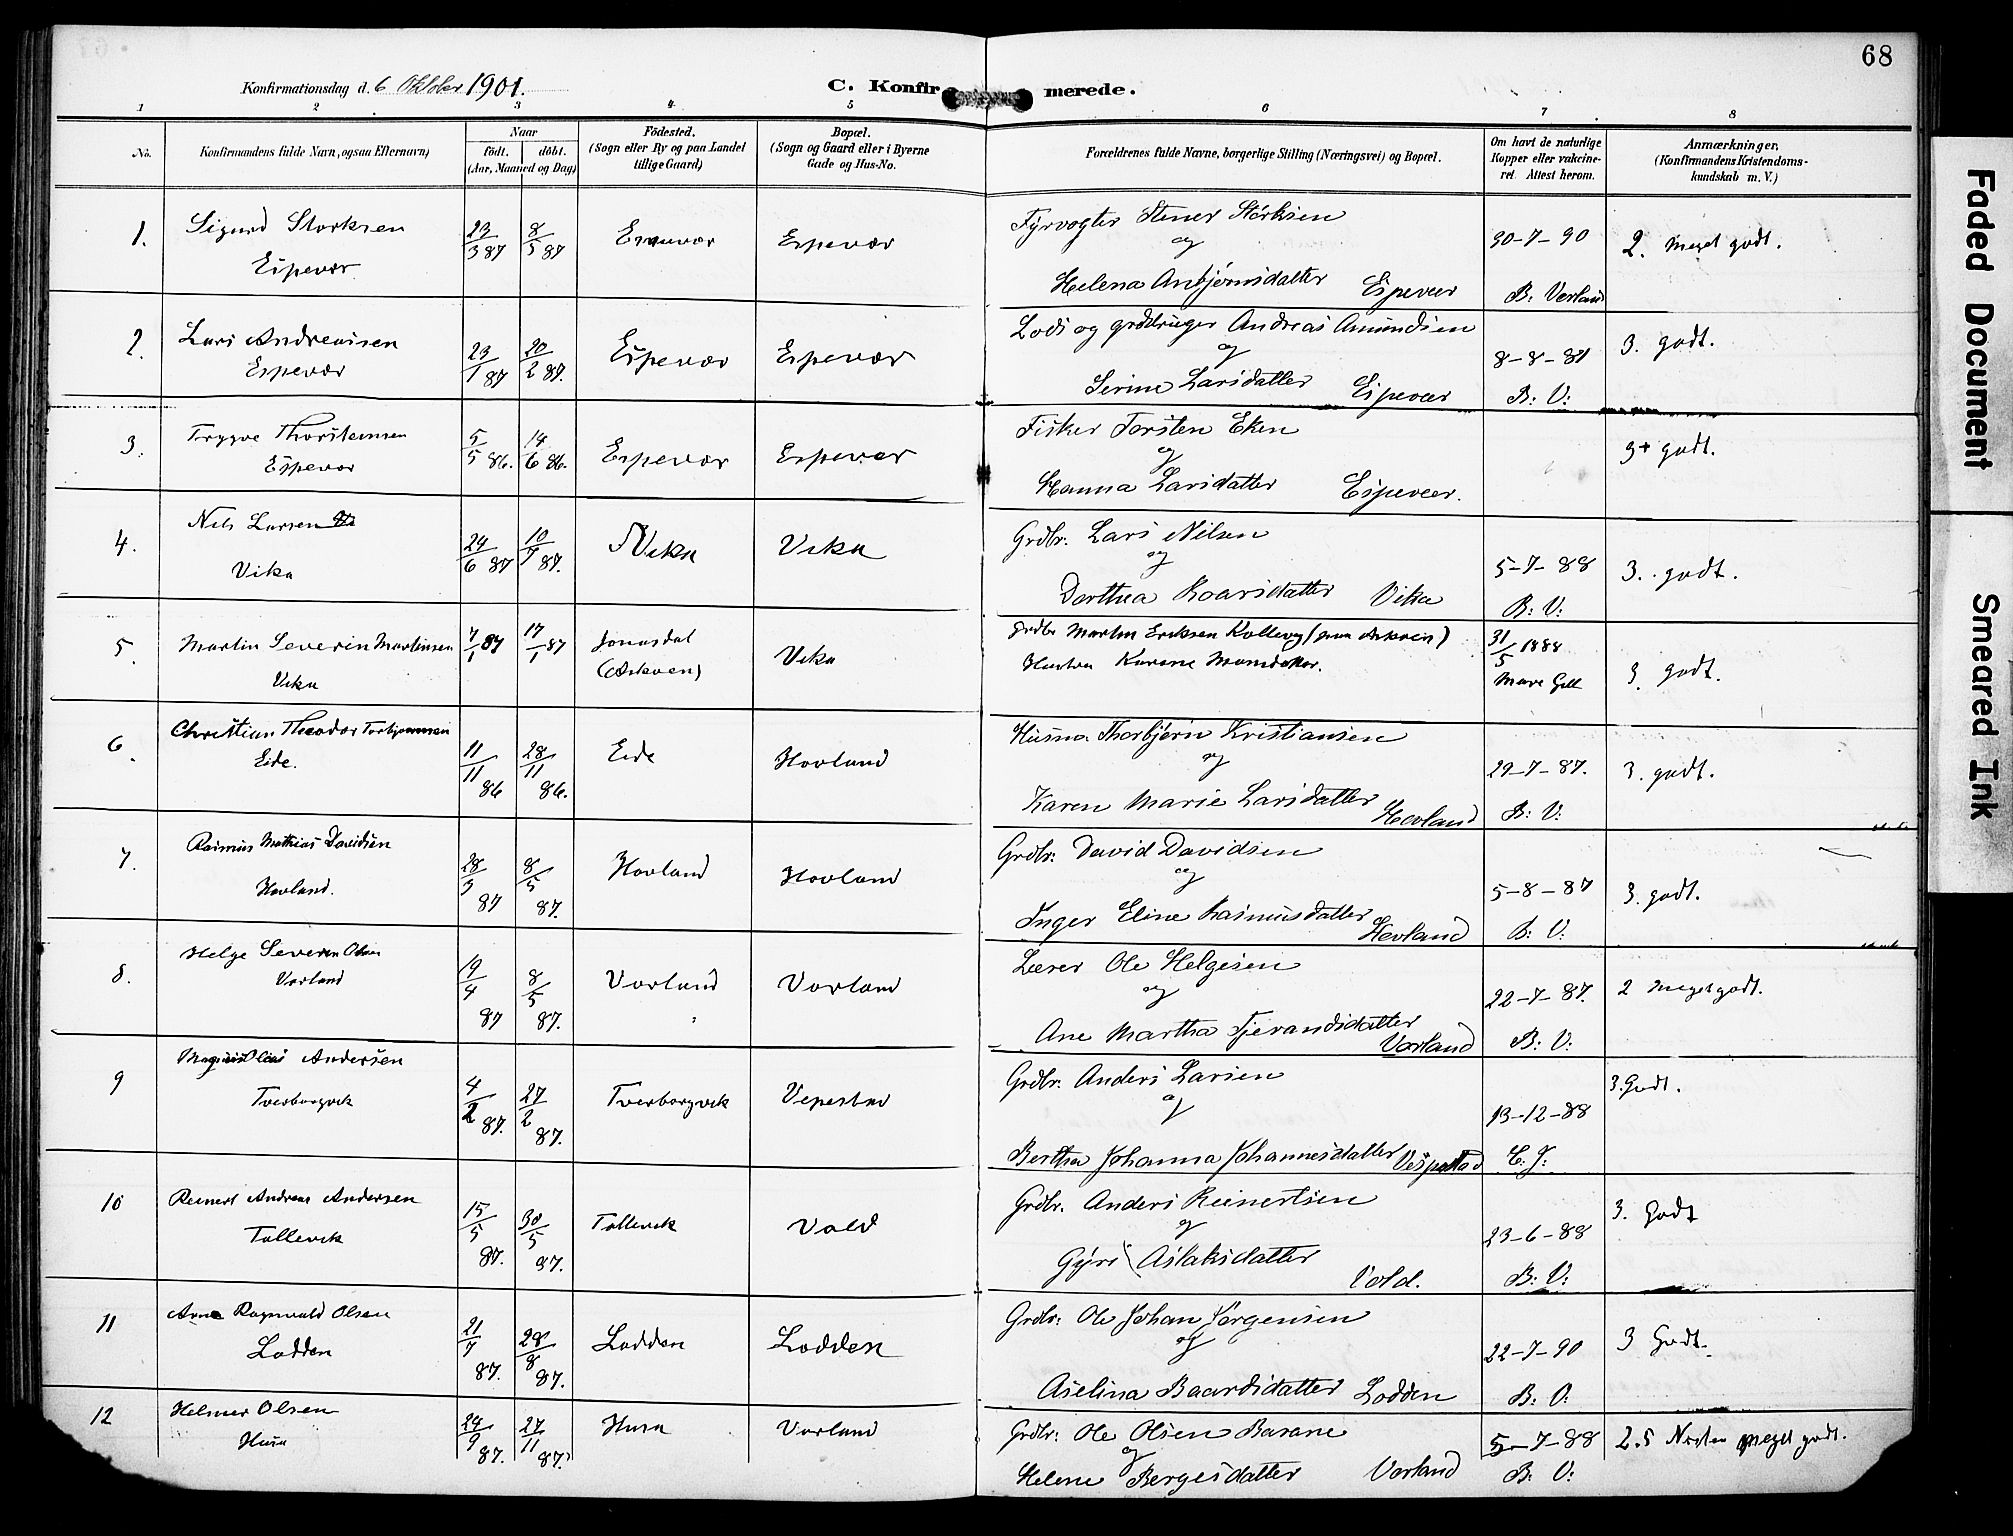 68
Konfirmationsdag d. 6 Oktober 1901.
C. Konfirmerede.
1 2 3 4. 5 6 7 8
No. Konfirmandens fulde Navn, ogsaa Efternavn) Naar födt. döbt. (Aar, Maaned og Dag) Födested. (Sogn eller By og paa Landet tillige Gaard) Bopæl. (Sogn og Gaard eller i Byerne Gade og Hus-No. Forældrenes fulde Navne, borgerlige Stilling (Næringsvei) og Bopæl. Om havt de naturlige Kopper eller vakcineret. Attest herom. Anmærkninger. (Konfirmandens Kristendomskundskab m. V.)
1. Sigurd Storksen 23/3 87 8/5 87 Espevær Espevær Fyrvogter Stener Störksen 30-7-90 2. Meget godt.
og
Espevær Helena Anbjørnsdatter Espevær B. Vorland
2. Lars Andreasen 23/1 87 20/2 87. Espevær Espevær Lods og grdbruger Andreas Amundsen 8-8-87 3. godt.
og
Espevær Serine Larsdatter Espevær B: V:
3. Trygve Thorstensen 5/5 86. 14/6 86. Espevær Espevær Fisker Torsten Eken 3+ godt.
og
Espevær Hanna Larsdatter Espevær.
4. Nils Larsen 24/6 87 10/7 87. Vika Vika Grdbr. Lars Nilsen 5-7-88 3. godt.
og
Vika Dorthea Roarsdatter Vika B: V:
5. Martin Severin Martinsen 7/1 87 17/1 87 Jonasdal Vika Grdbr Martin Eriksen Kollevåg (paa Askøen) 31/5 1888 3. godt.
Vika (Askøen) Hustru Karene Monsdatter.
6. Christian Theodor Torbjørnsen 11/11 86 28/11 86. Eide Hovland Husma. Thorbjørn Kristiansen 29-7-87. 3. godt.
og
Eide. Karen Marie Larsdatter Hovland B: V:
7. Rasmus Mathias Davidsen 28/3 87 8/5 87. Hovland Hovland Grdbr: David Davidsen 5-8-87 3. godt.
og
Hovland. Inger Eline Rasmusdatter Hovland B: V:
8. Helge Severin Olsen 19/4 87 8/5 87. Vorland Vorland Lærer Ole Helgesen 22-7-87. 2 Meget godt.
og
Vorland Ane Martha Tjerandsdatter Vorland B: V:
9 Magnus Olai Andersen 4/2 87. 27/2 87. Tverborgvik Vepestad Grdbr. Anders Larsen 13-12-88 3. Godt.
og
Tverborgvik Bertha Johanna Johannesdatter Vespestad
10 Reinert Andreas Andersen 15/5 87. 30/5 87. Tollevik Vold Grdbr. Anders Reinertsen 23-6-88 3. Godt
og
Tollevik Gyri Aslaksdatter Vold. B: V:
11 Arne Ragnvald Olsen 21/7 87. 28/8 87. Lodden Lodden Grdbr: Ole Johan Jørgensen 22-7-90 3 Godt.
og
Lodden Aselina Baardsdatter Lodden B: V:
12 Helmer Olsen 24/9 87. 27/11 87. Husa Vorland Grdbr: Ole Olsen Barane 5-7-88 2.5 Næsten meget godt.
og
Husa Helene Bergesdatter Vorland B: V:
Faded Document
Smeared Ink